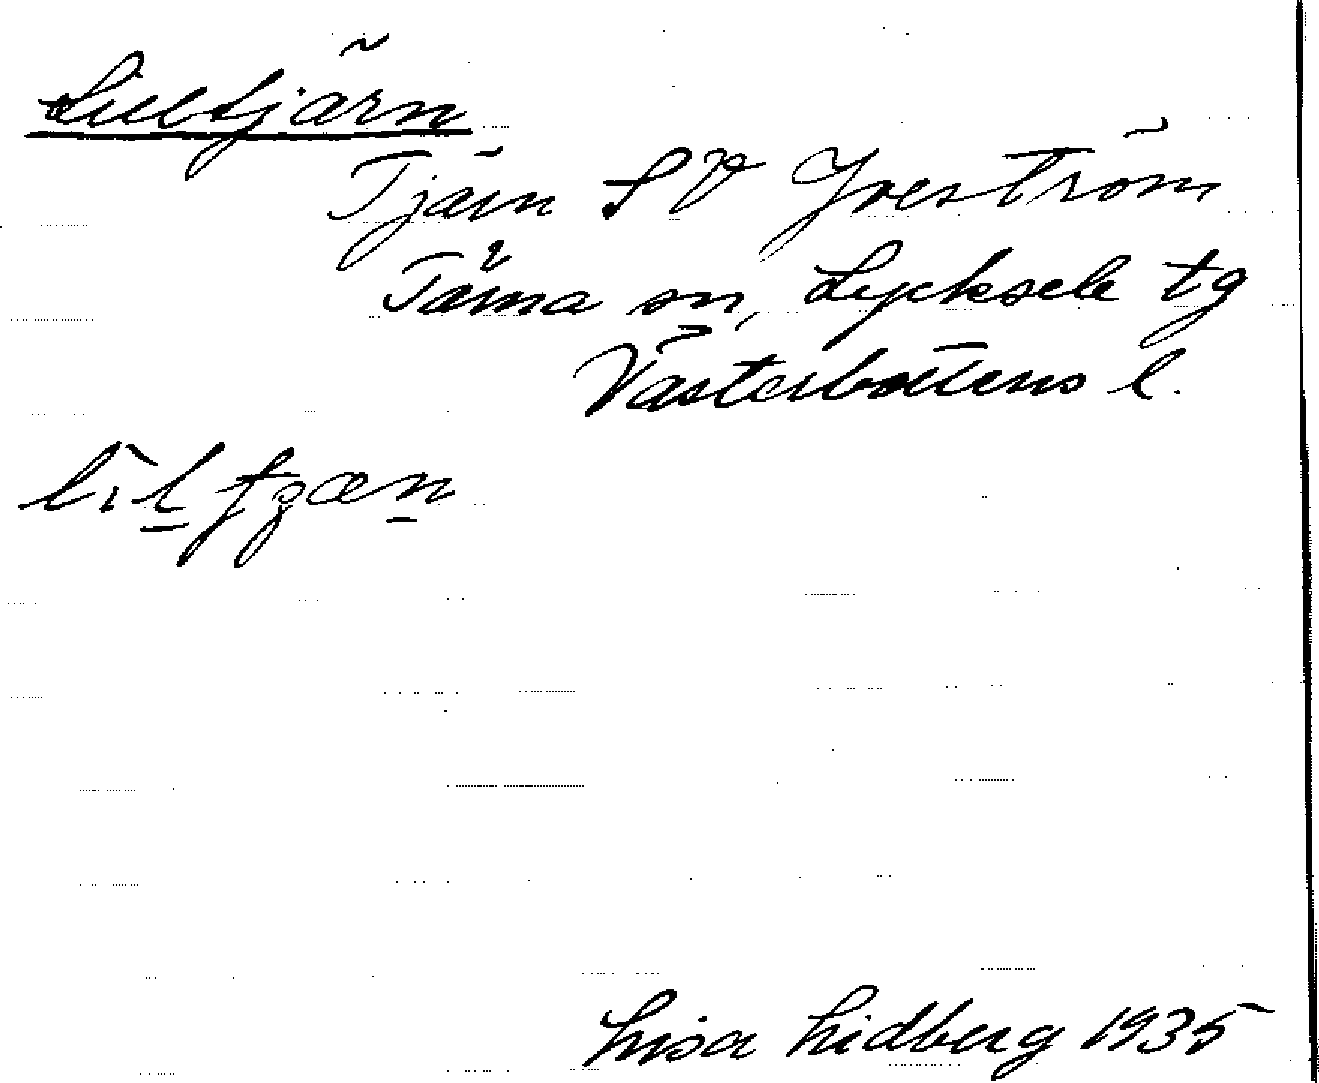 Liltjärn
Tjärn SV Yveström
Tärna sn, Lycksele tg
Västerbottens l.
Lisa Lidberg 1935